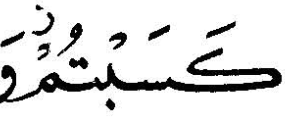 كَسَبْتُمْ وَ